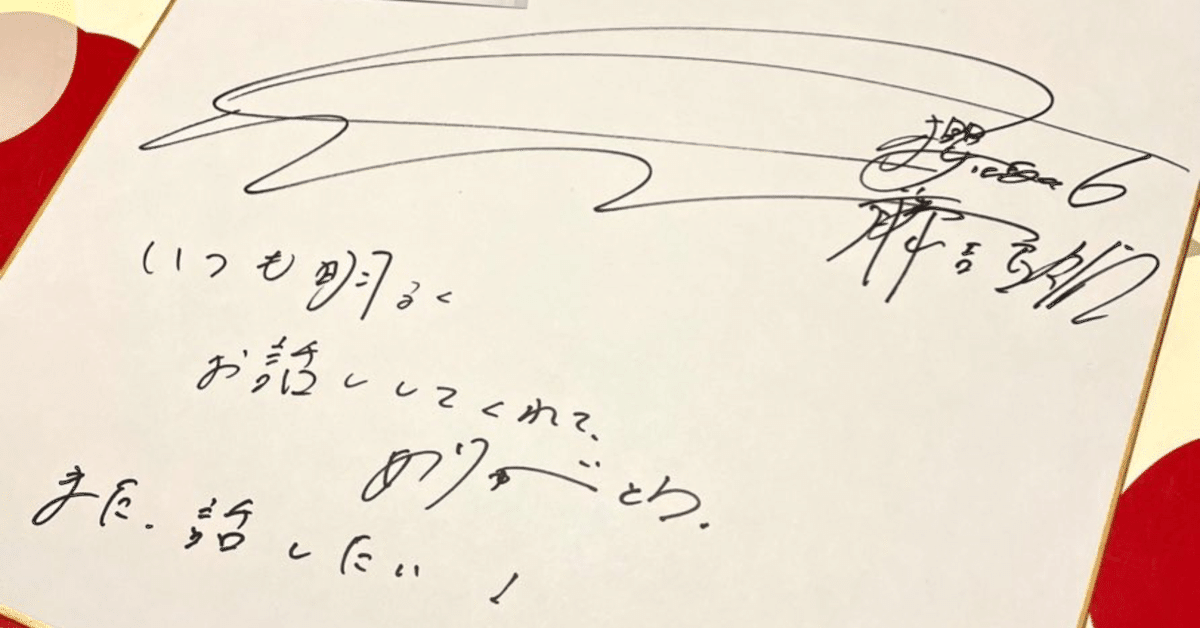 いつも明るく
お話ししてくれて、
ありがとう.
また、話したい！